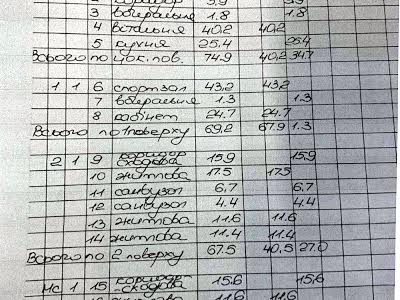 3 вбиральня 1.8 1.8
4 вітальня 40,2 40,2
5 кухня 25.4 25.4
Всього по цок. пов. 74.9 40,2 34.7
1 1 6 спортзал 43,2 43,2
7 вбиральня 1.3 1.3
8 кабінет 24.7 24.7
Всього по 1 поверху 69,2 67.9 1.3
2 1 9 коридор сходова 15.9 15.9
10 житлова 17.5 17.5
11 санвузол 6.7 6.7
12 санвузол 4.4 4.4
13 житлова 11.6 11.6
14 житлова 11.4 11.4
Всього по 2 поверху 67.5 40,5 27.0
мс 1 15 коридор сходова 15.6 15.6